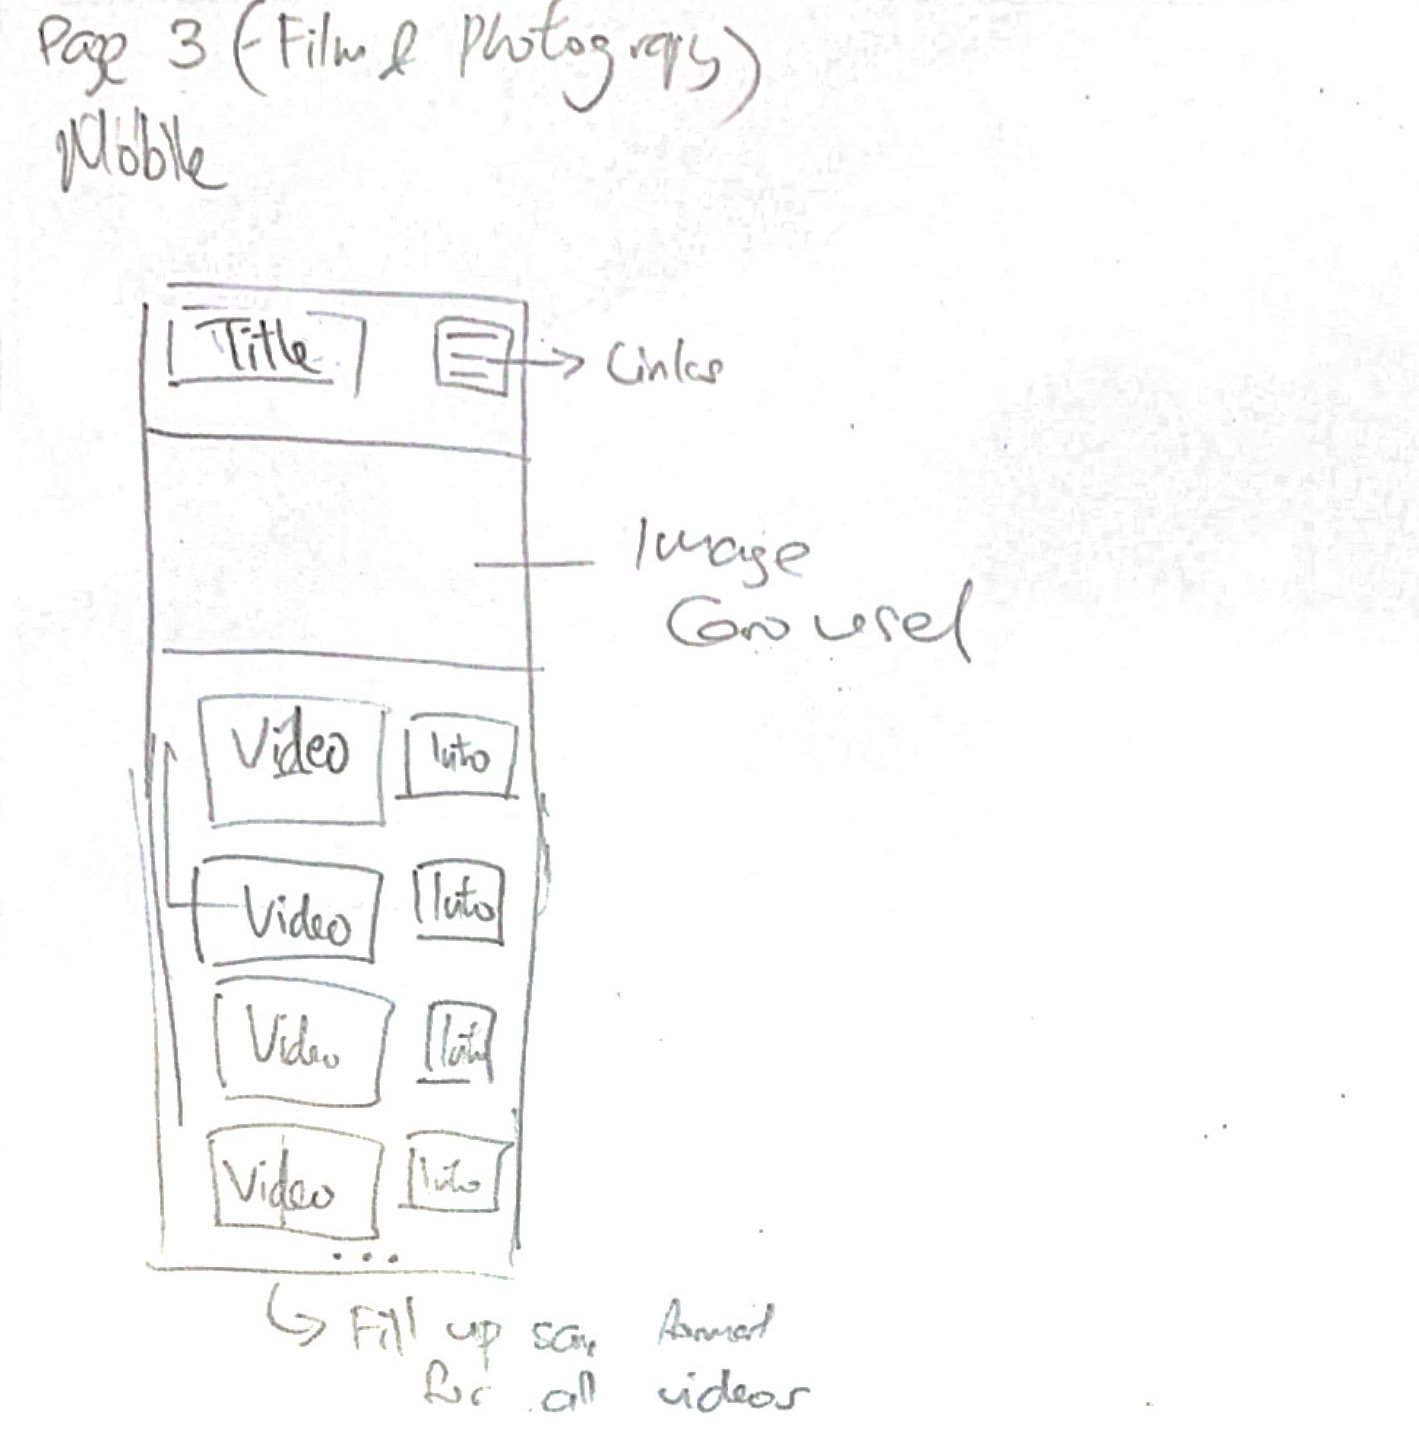 Page 3 (Film & Photography)
Mobile
Title
Links
Image
Carousel
Video Info
Video Info
Video Info
Video Info
...
Fill up same format
for all videos